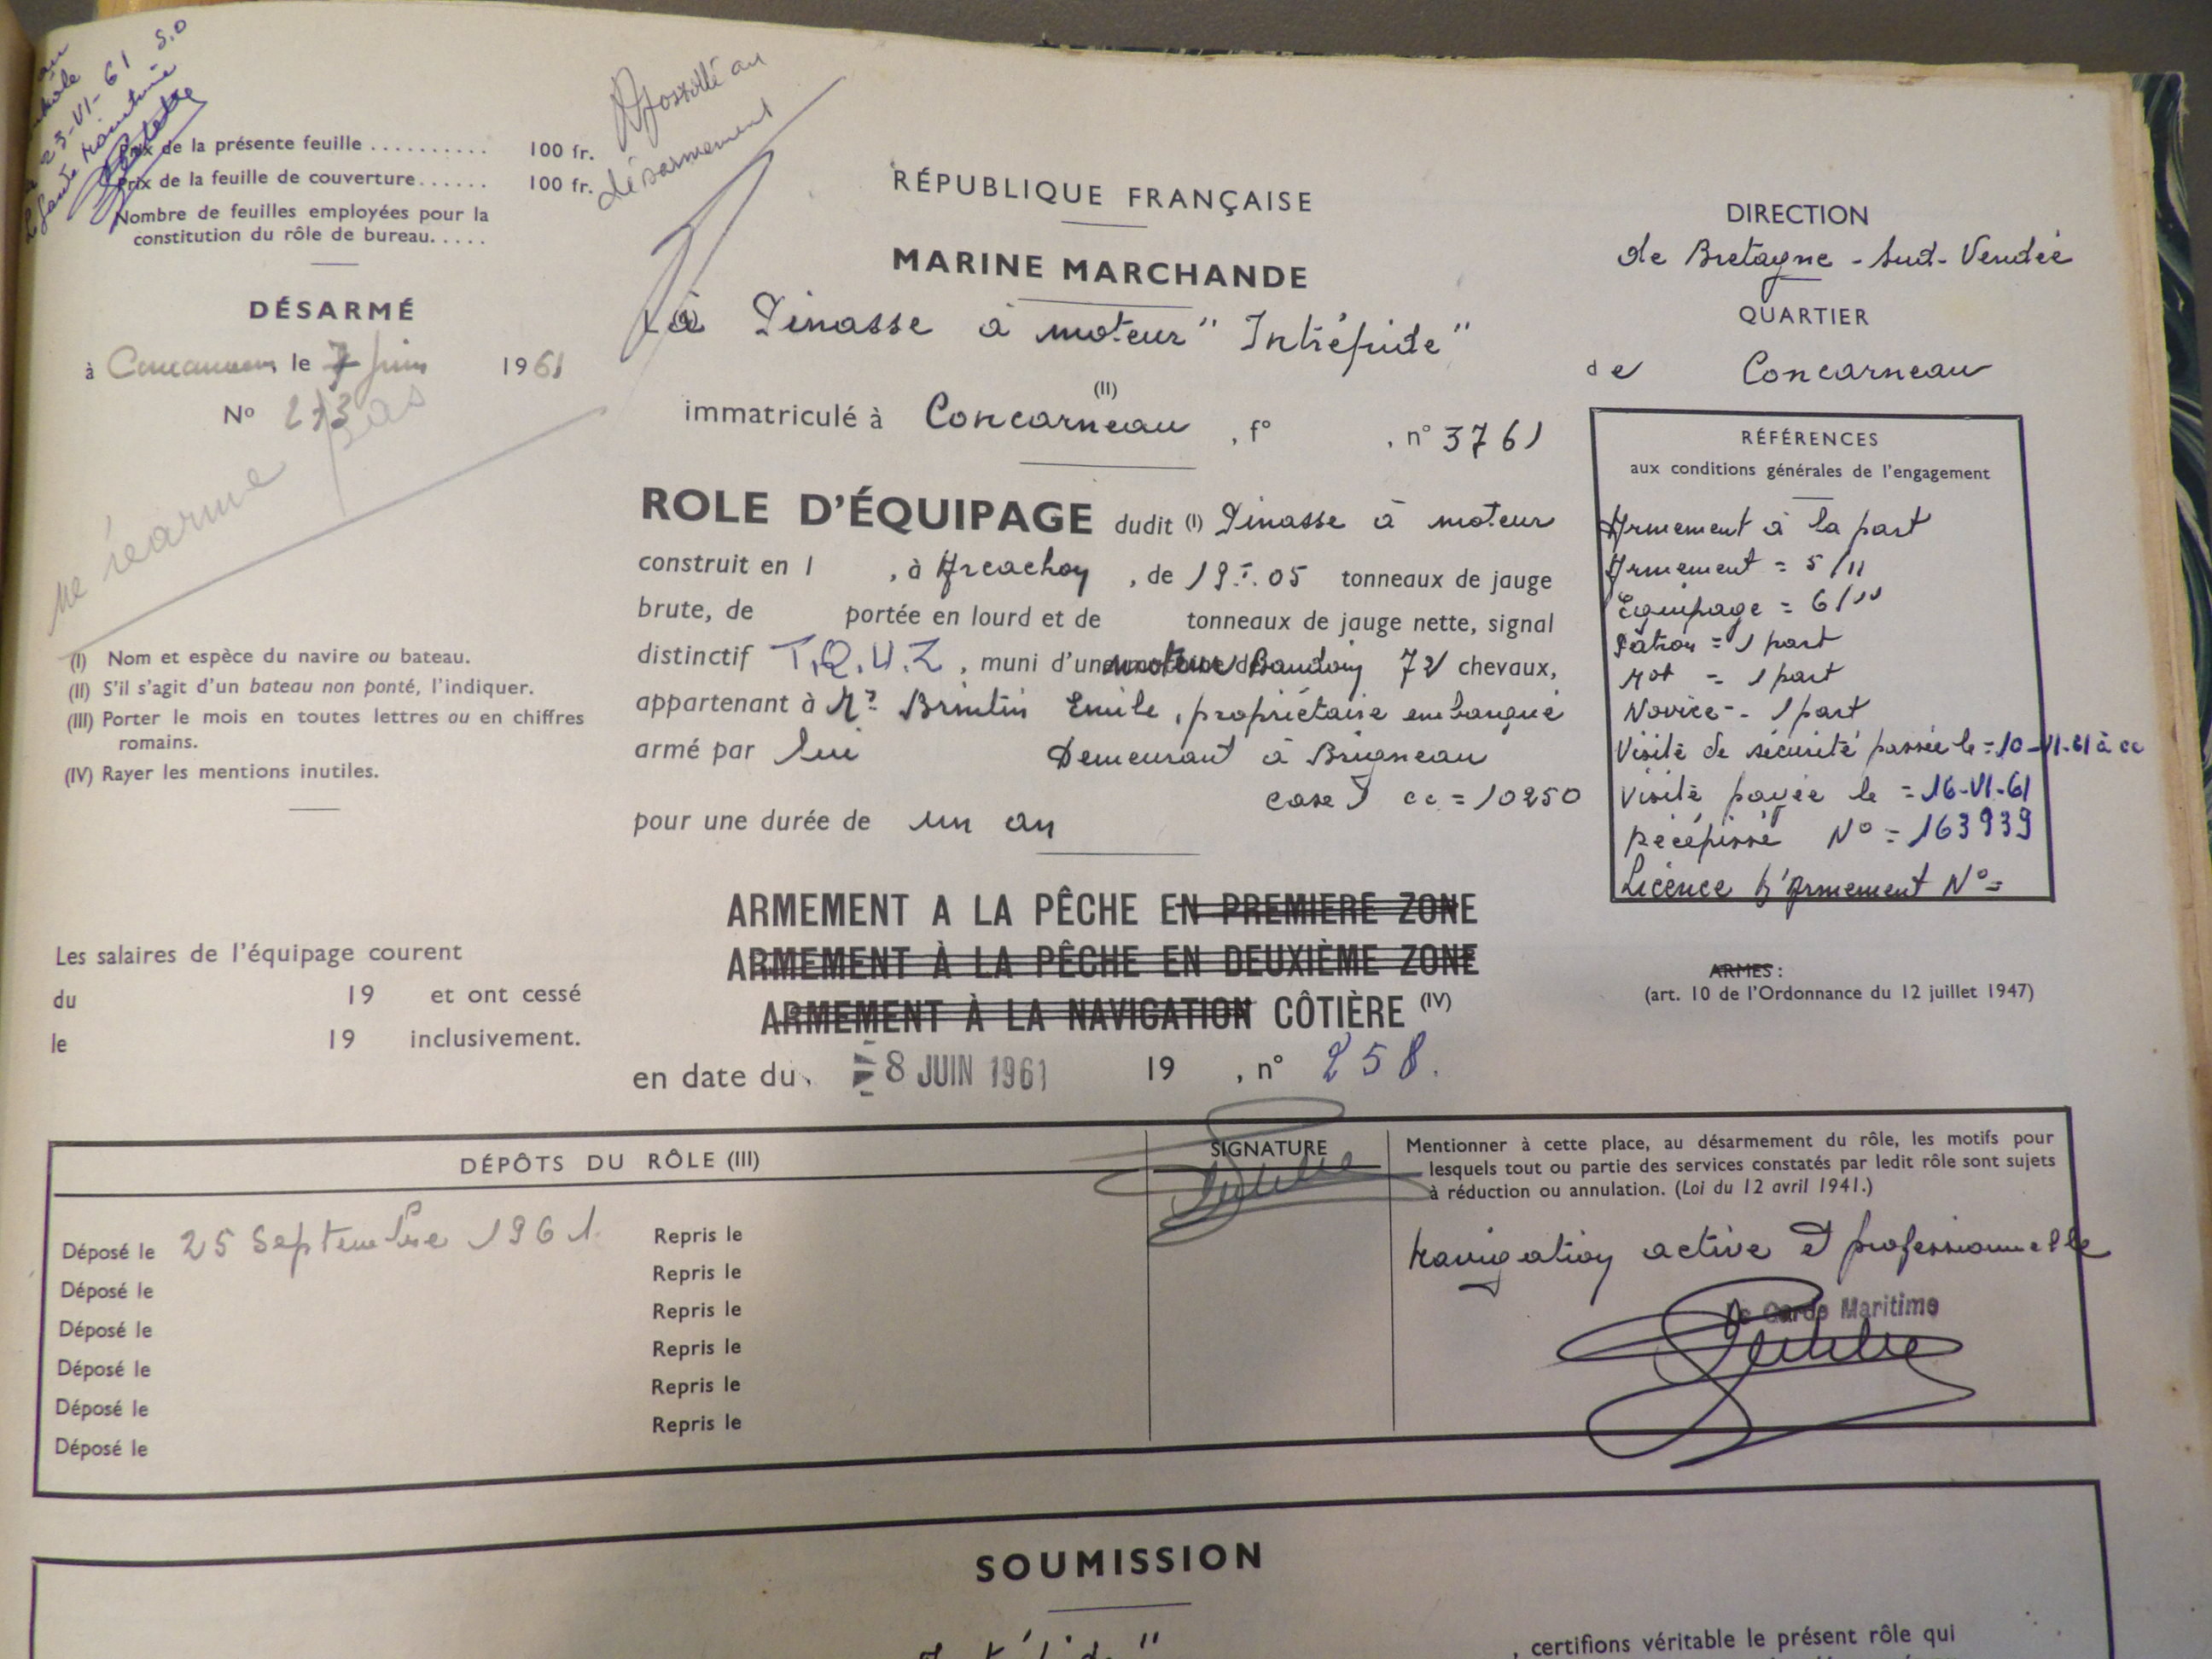 23-VI-61 S.O
Prix de la présente feuille .......... 100 fr.
Prix de la feuille de couverture...... 100 fr.
Nombre de feuilles employées pour la
constitution du rôle de bureau.....
Apostillé au
désarmement
DÉSARMÉ
à Concarneau, le 7 Juin 1961
No 273
ne réarme pas
(I) Nom et espèce du navire ou bateau.
(II) S'il s'agit d'un bateau non ponté, l'indiquer.
(III) Porter le mois en toutes lettres ou en chiffres
romains.
(IV) Rayer les mentions inutiles.
Les salaires de l'équipage courent
du 19 et ont cessé
le 19 inclusivement.
RÉPUBLIQUE FRANÇAISE
MARINE MARCHANDE
Pinasse à moteur "Intrépide"
(II)
immatriculé à Concarneau, fo , no 3761
ROLE D'ÉQUIPAGE dudit (I) Pinasse à moteur
construit en 1 , à Arcachon, de 19 T. 05 tonneaux de jauge
brute, de portée en lourd et de tonneaux de jauge nette, signal
distinctif T.Q.U.Z, muni d'une moteur Baudoin 72 chevaux,
appartenant à Mr Brintin Emile, propriétaire embarqué
armé par lui Demeurant à Brigneau
cc = 10250
pour une durée de un an
ARMEMENT A LA PÊCHE EN PREMIERE ZONE
ARMEMENT À LA PÊCHE EN DEUXIÈME ZONE
ARMEMENT À LA NAVIGATION CÔTIÈRE (IV)
en date du 8 JUIN 1961 19 , no 258.
DIRECTION
de Bretagne - Sud - Vendée
QUARTIER
de Concarneau
RÉFÉRENCES
aux conditions générales de l'engagement
Armement à la part
Armement = 5/11
Equipage = 6/11
Patron = 1 part
Mot = 1 part
Novice - 1 part
Visite de sécurité passée le = 10-VI-61 à cc
Visite payée le = 16-VI-61
Récépissé No = 163939
Licence d'Armement No =
ARMES :
(art. 10 de l'Ordonnance du 12 juillet 1947)
DÉPÔTS DU RÔLE (III)
SIGNATURE
Mentionner à cette place, au désarmement du rôle, les motifs pour
lesquels tout ou partie des services constatés par ledit rôle sont sujets
à réduction ou annulation. (Loi du 12 avril 1941.)
Déposé le 25 Septembre 1961. Repris le
Déposé le Repris le
Déposé le Repris le
Déposé le Repris le
Déposé le Repris le
Déposé le Repris le
Navigation active et professionnelle
Le Garde Maritime
SOUMISSION
, certifions véritable le présent rôle qui